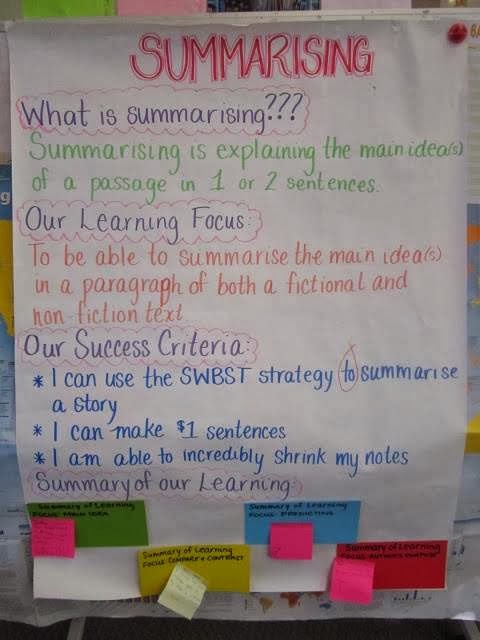 SUMMARISING
What is summarising???
Summarising is explaining the main idea(s)
of a passage in 1 or 2 sentences.
Our Learning Focus:
To be able to summarise the main idea(s)
in a paragraph of both a fictional and
non-fiction text
Our Success Criteria:
* I can use the SWBST strategy to summarise
a story
* I can make $1 sentences
* I am able to incredibly shrink my notes
Summary of our Learning
Summary of Learning
FOCUS: MAIN IDEA
Summary of Learning
FOCUS: PREDICTING
Summary of Learning
FOCUS: COMPARE + CONTRAST
Summary of Learning
FOCUS: AUTHOR'S PURPOSE